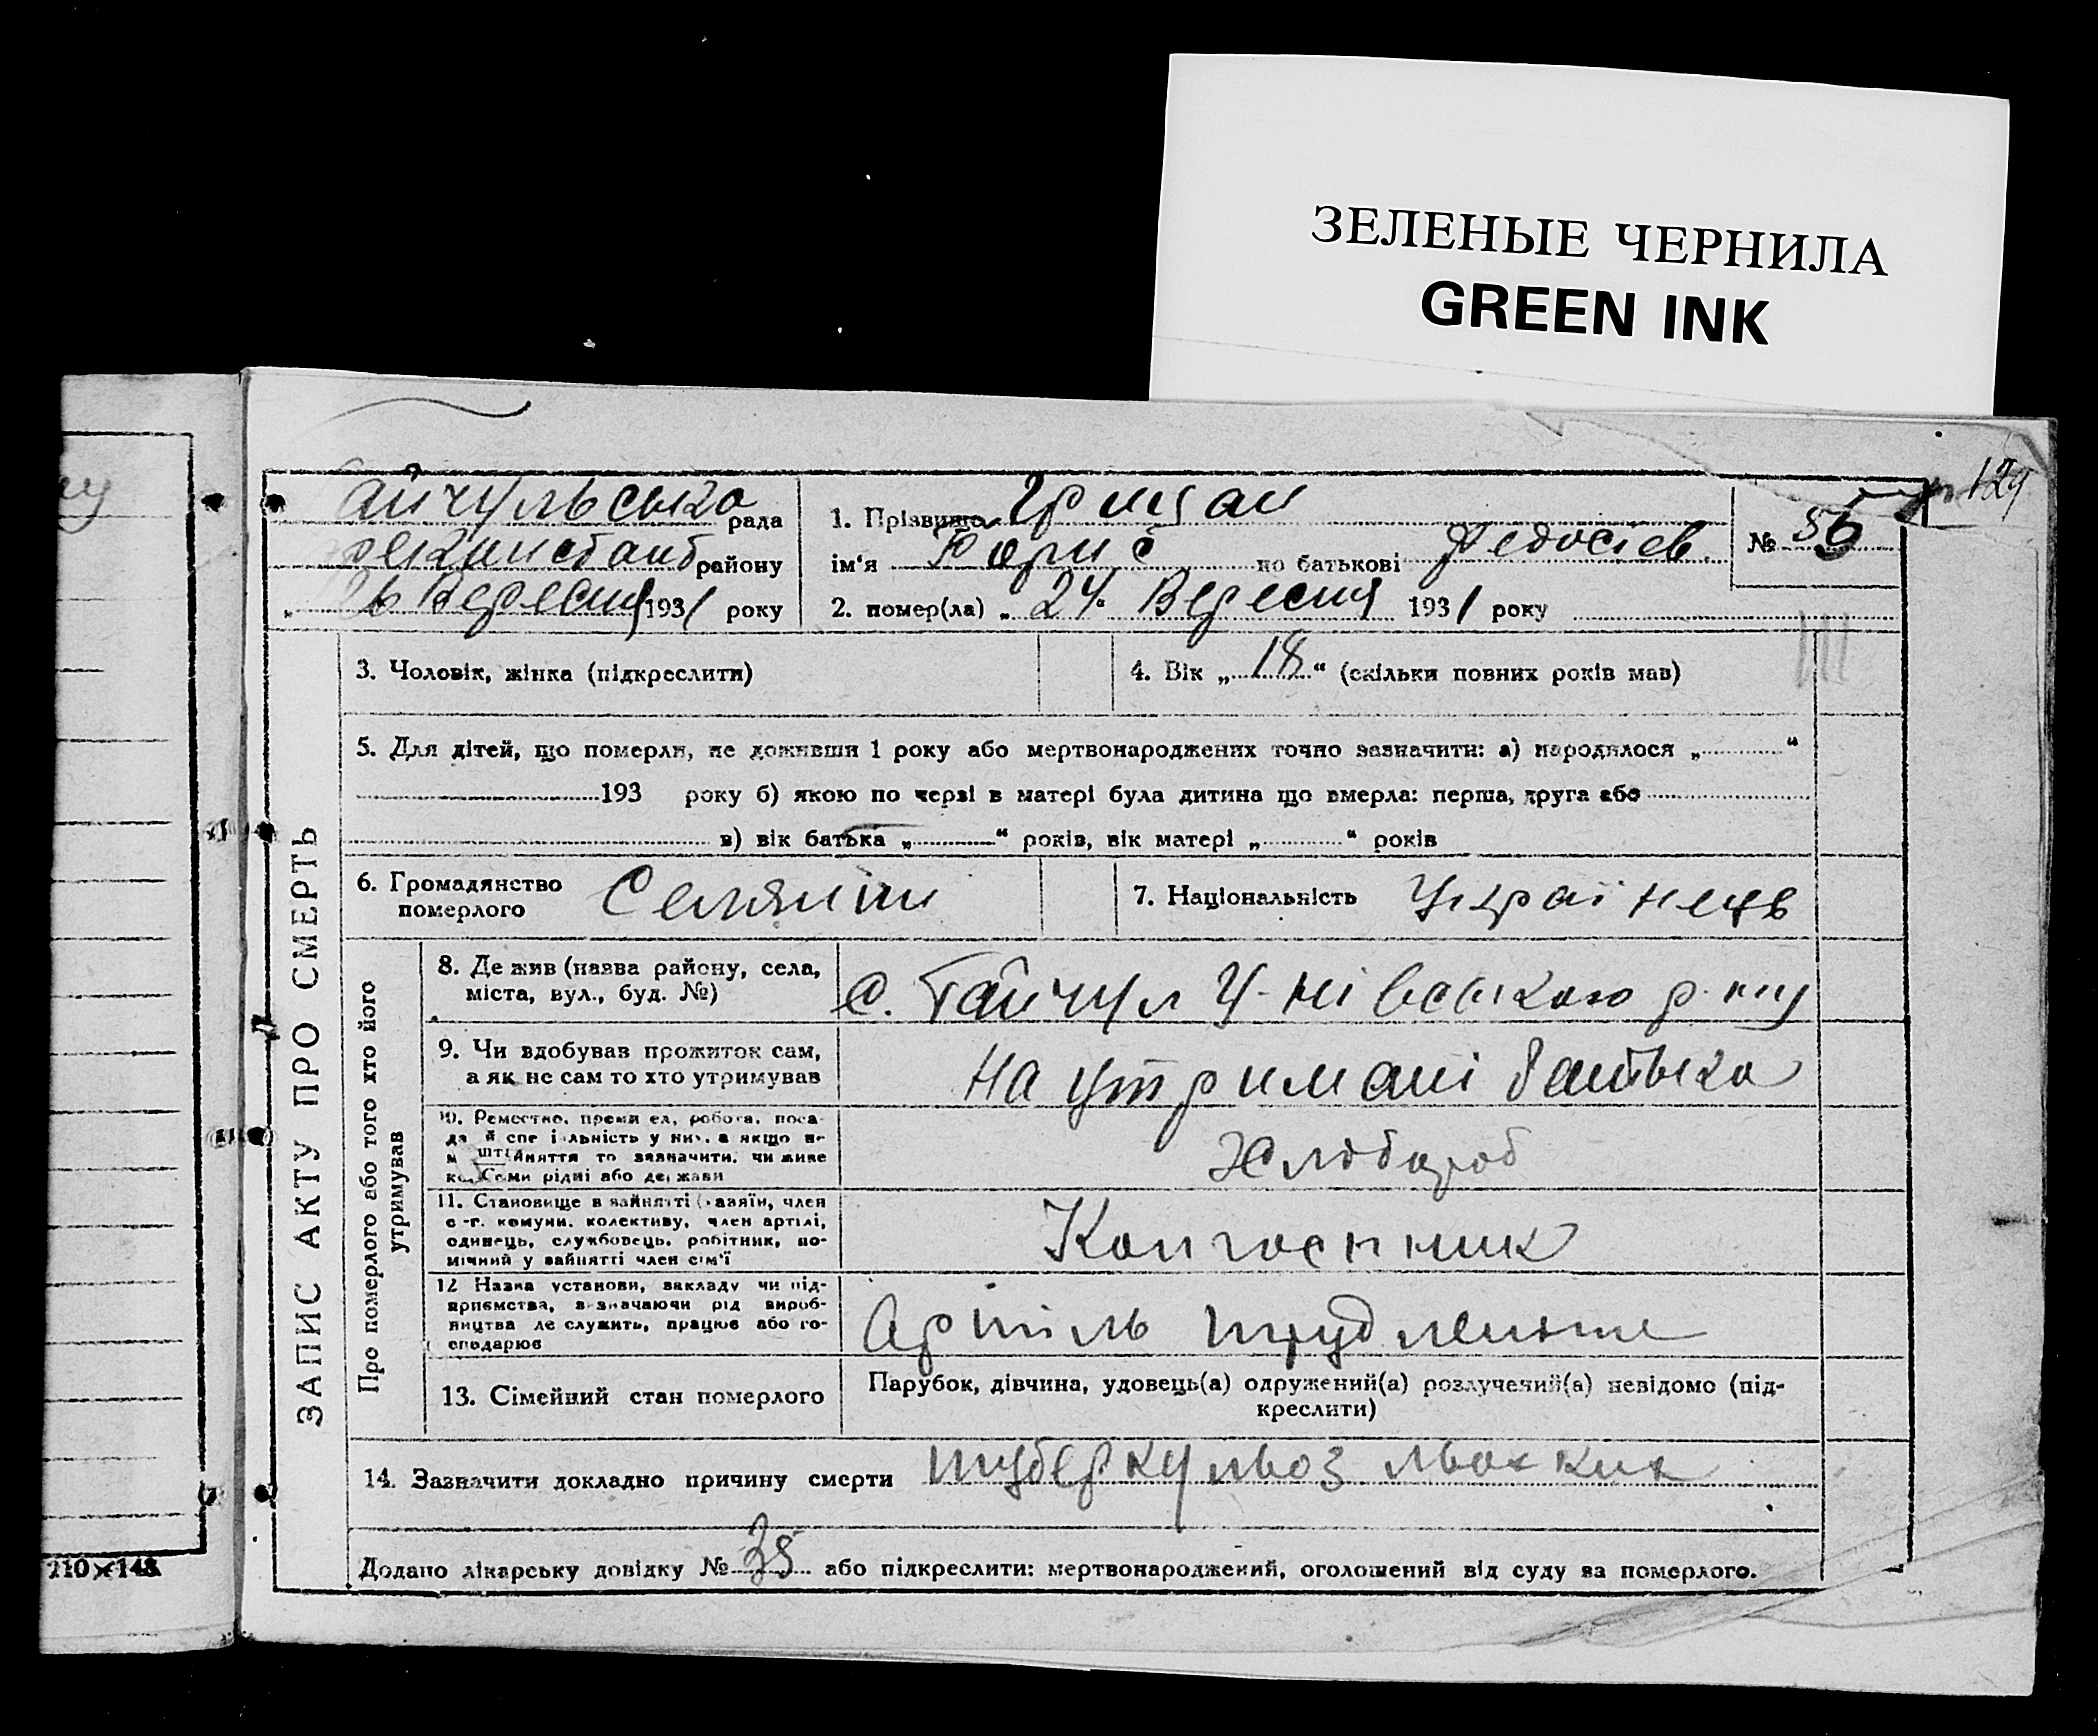 ЗЕЛЕНЫЕ ЧЕРНИЛА
GREEN INK
129
айчульська рада
району
26 Вересня 1931 року
1. Прізвище Грицан
ім'я Борис по батькові Федосієв.
№ 56
2. помер(ла) „ 24 Вересня 1931 року
3. Чоловік, жінка (підкреслити)
4. Вік „ 18 “ (скільки повних років мав)
5. Для дітей, що померли, не доживши 1 року або мертвонароджених точно зазначити: а) народилося „ “
193 року б) якою по черзі в матері була дитина що вмерла: перша, друга або
в) вік батька „ “ років, вік матері „ “ років
6. Громадянство померлого Селянин
7. Національність Українець
ЗАПИС АКТУ ПРО СМЕРТЬ
Про померлого або того хто його утримував
8. Де жив (назва району, села,
міста, вул., буд. №)
с. Гайчул
9. Чи вдобував прожиток сам,
а як не сам то хто утримував
На утримані батька
10. Ремество, промисел, робота, поса-
да й спеціальність у них, а якщо не
коштами рідні або держави
Хлібороб
11. Становище в зайнятті (хазяїн, член
с-г. комуни, колективу, член артілі,
одинець, службовець, робітник, по-
мічний у зайнятті член сім'ї
Колгоспник
12 Назва установи, закладу чи під-
приємства, визначаючи рід вироб-
ництва де служить, працює або го-
сподарює
Артіль
13. Сімейний стан померлого
Парубок, дівчина, удовець(а) одружений(а) розлучений(а) невідомо (під-
креслити)
14. Зазначити докладно причину смерти туберкульоз
Додано лікарську довідку № 35 або підкреслити: мертвонароджений, оголошений від суду за померлого.
210×148